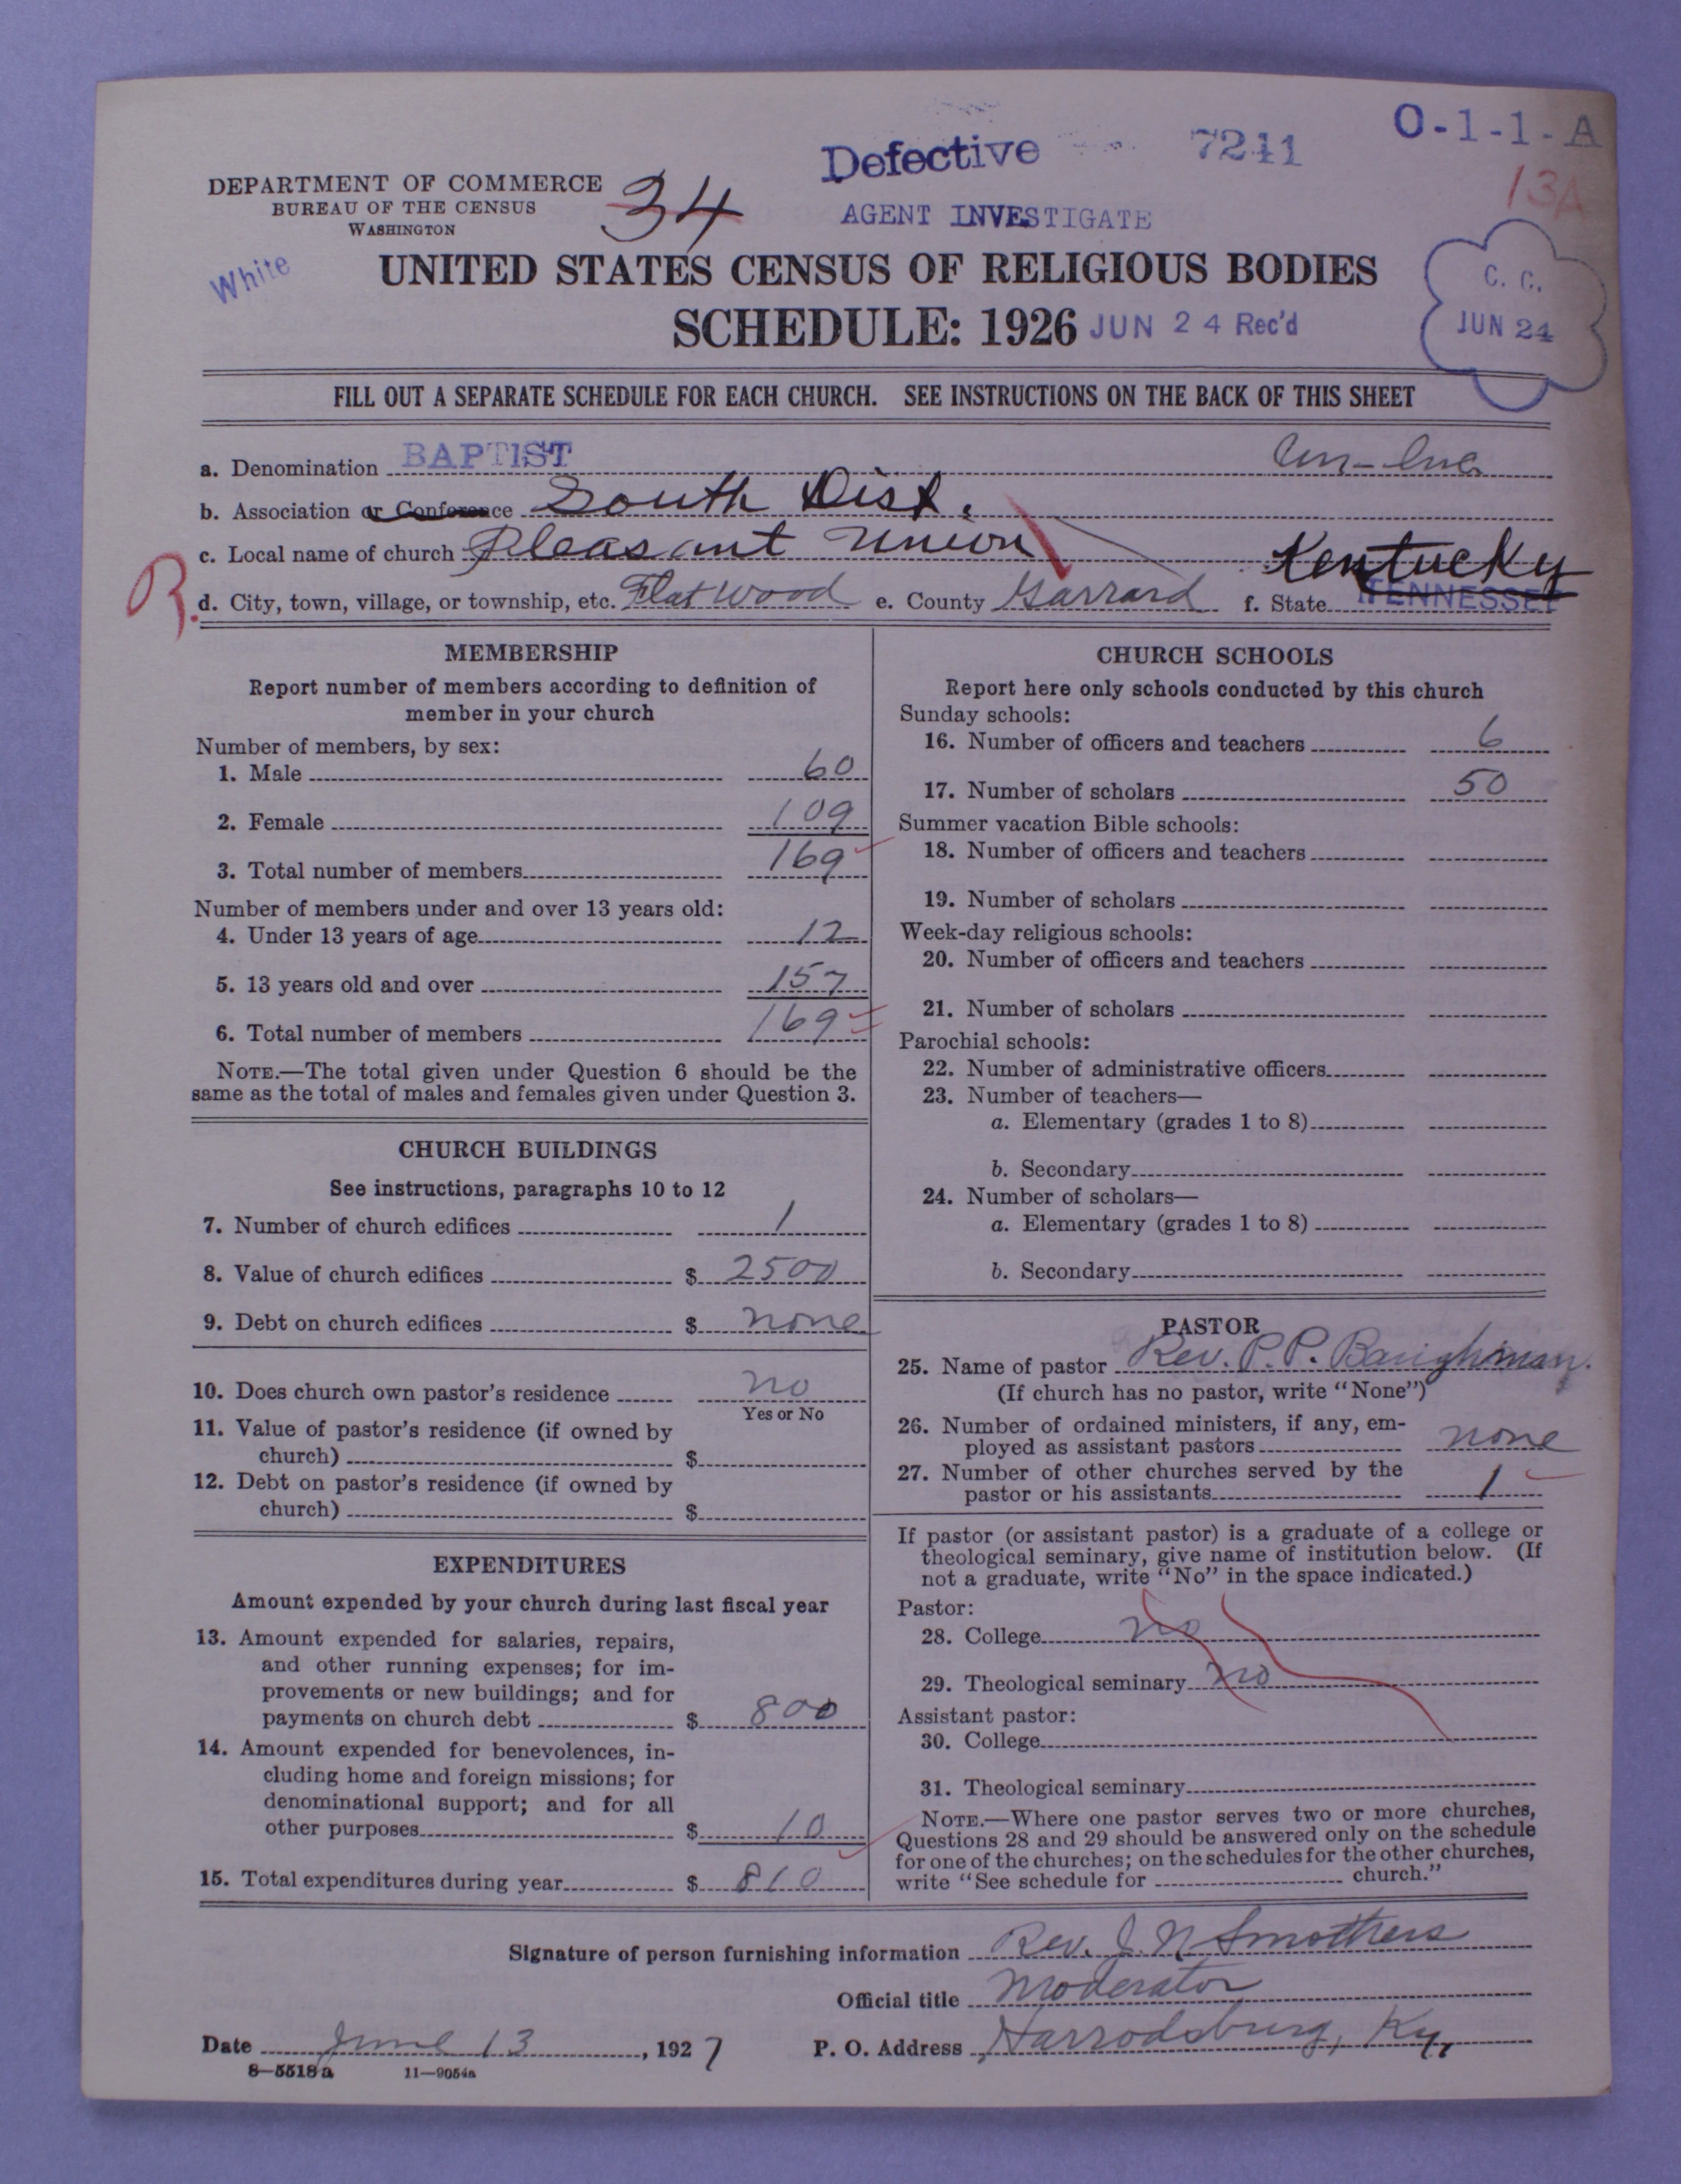 O-1-1-A
Defective 7211
13A
DEPARTMENT OF COMMERCE
BUREAU OF THE CENSUS
WASHINGTON
34
AGENT INVESTIGATE
White
UNITED STATES CENSUS OF RELIGIOUS BODIES
SCHEDULE: 1926 JUN 24 Rec'd
C. C.
JUN 24
FILL OUT A SEPARATE SCHEDULE FOR EACH CHURCH. SEE INSTRUCTIONS ON THE BACK OF THIS SHEET
a. Denomination BAPTIST
b. Association or Conference South Dist.
c. Local name of church Pleasant Union Kentucky
R.
d. City, town, village, or township, etc. Flat Wood e. County Garrard f. State TENNESSEE
MEMBERSHIP
Report number of members according to definition of
member in your church
Number of members, by sex:
1. Male 60
2. Female 109
3. Total number of members 169
Number of members under and over 13 years old:
4. Under 13 years of age 12
5. 13 years old and over 157
6. Total number of members 169
NOTE.—The total given under Question 6 should be the
same as the total of males and females given under Question 3.
CHURCH BUILDINGS
See instructions, paragraphs 10 to 12
7. Number of church edifices 1
8. Value of church edifices $ 2500
9. Debt on church edifices $ none
10. Does church own pastor's residence no
Yes or No
11. Value of pastor's residence (if owned by
church) $
12. Debt on pastor's residence (if owned by
church) $
EXPENDITURES
Amount expended by your church during last fiscal year
13. Amount expended for salaries, repairs,
and other running expenses; for im-
provements or new buildings; and for
payments on church debt $ 800
14. Amount expended for benevolences, in-
cluding home and foreign missions; for
denominational support; and for all
other purposes $ 10
15. Total expenditures during year $ 810
CHURCH SCHOOLS
Report here only schools conducted by this church
Sunday schools:
16. Number of officers and teachers 6
17. Number of scholars 50
Summer vacation Bible schools:
18. Number of officers and teachers
19. Number of scholars
Week-day religious schools:
20. Number of officers and teachers
21. Number of scholars
Parochial schools:
22. Number of administrative officers
23. Number of teachers—
a. Elementary (grades 1 to 8)
b. Secondary
24. Number of scholars—
a. Elementary (grades 1 to 8)
b. Secondary
PASTOR
25. Name of pastor Rev. P. P. Baughman.
(If church has no pastor, write "None")
26. Number of ordained ministers, if any, em-
ployed as assistant pastors none
27. Number of other churches served by the
pastor or his assistants 1
If pastor (or assistant pastor) is a graduate of a college or
theological seminary, give name of institution below. (If
not a graduate, write "No" in the space indicated.)
Pastor:
28. College no
29. Theological seminary no
Assistant pastor:
30. College
31. Theological seminary
NOTE.—Where one pastor serves two or more churches,
Questions 28 and 29 should be answered only on the schedule
for one of the churches; on the schedules for the other churches,
write "See schedule for church."
Signature of person furnishing information Rev. J. N. Smothers
Official title Moderator
Date June 13, 1927 P. O. Address Harrodsburg, Ky,
8—5518a 11—9054a